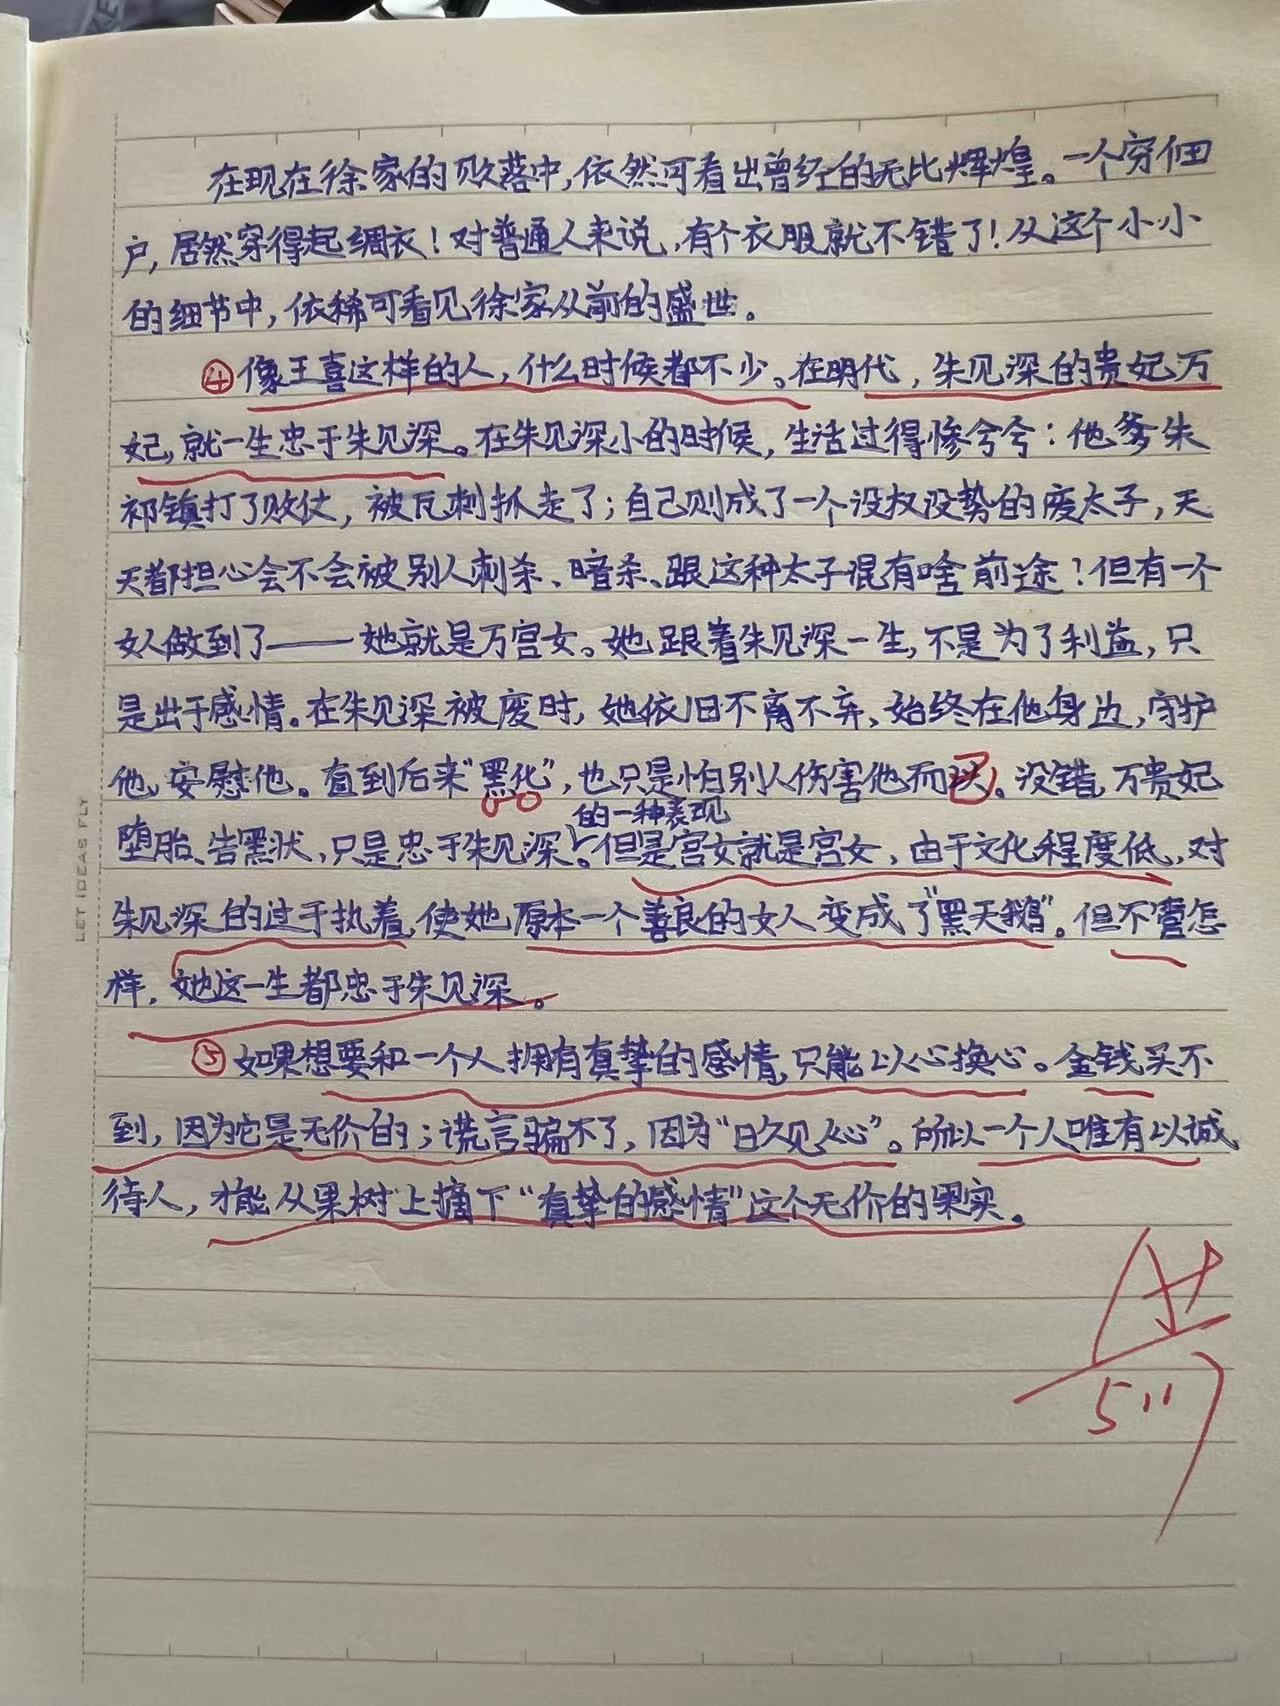 在现在徐家的败落中,依然可看出曾经的无比辉煌。一个穷佃
户,居然穿得起绸衣!对普通人来说,有个衣服就不错了!从这个小小
的细节中,依稀可看见徐家从前的盛世。
④像王喜这样的人,什么时候都不少。在明代,朱见深的贵妃万
妃,就一生忠于朱见深。在朱见深小的时候,生活过得惨兮兮:他爹朱
祁镇打了败仗,被瓦剌抓走了;自己则成了一个没权没势的废太子,天
天都担心会不会被别人刺杀、暗杀、跟这种太子混有啥前途!但有一个
女人做到了——她就是万宫女。她跟着朱见深一生,不是为了利益,只
是出于感情。在朱见深被废时,她依旧不离不弃,始终在他身边,守护
他,安慰他。直到后来“黑化”,也只是怕别人伤害他而已。没错,万贵妃
的一种表现
堕胎、告黑状,只是忠于朱见深。但是宫女就是宫女,由于文化程度低,对
朱见深的过于执着,使她原本一个善良的女人变成了“黑天鹅”。但不管怎
样,她这一生都忠于朱见深。
⑤如果想要和一个人拥有真挚的感情,只能以心换心。金钱买不
到,因为它是无价的;谎言骗不了,因为“日久见人心”。所以一个人唯有以诚
待人,才能从果树上摘下“真挚的感情”这个无价的果实。
5.11
LET IDEAS FLY